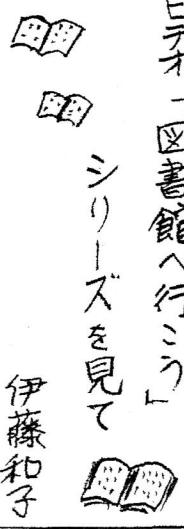 ビデオ「図書館へ行こう」
シリーズを見て
伊藤和子